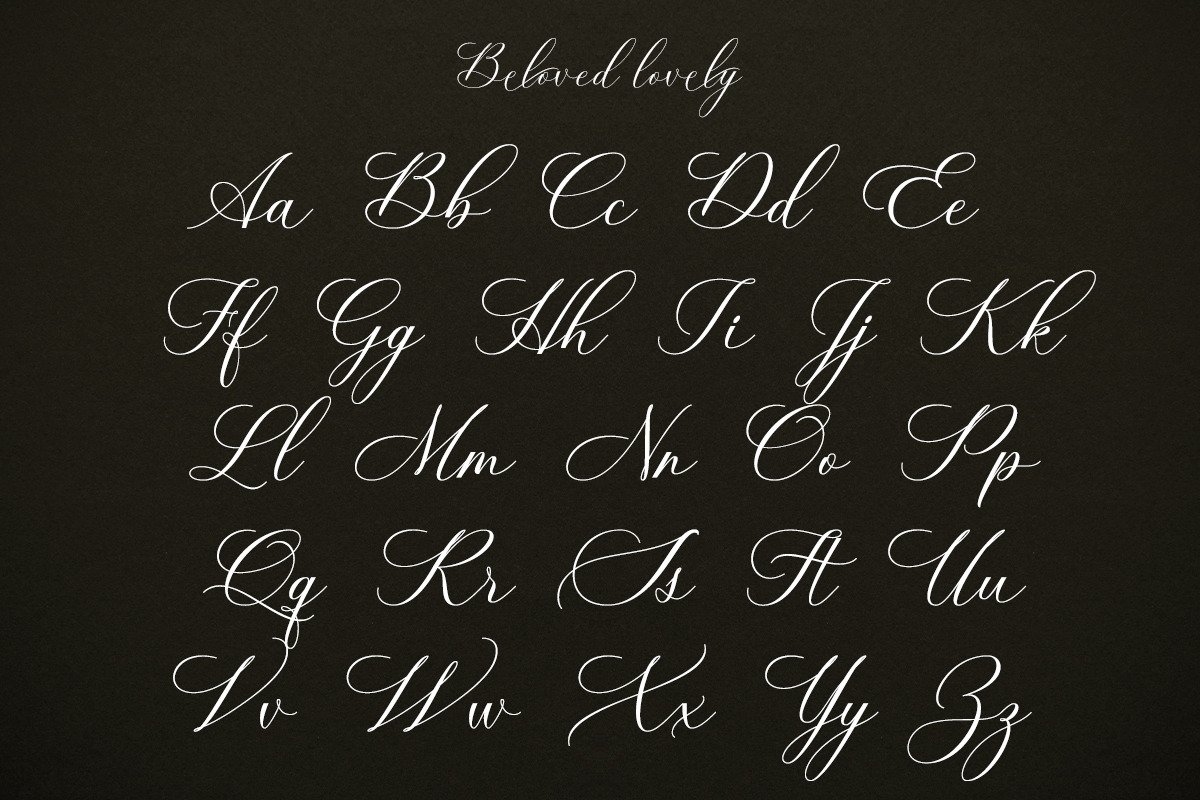 Beloved lovely
Aa Bb Cc Dd Ee
Ff Gg Hh Ii Jj Kk
Ll Mm Nn Oo Pp
Qq Rr Ss Tt Uu
Vv Ww Xx Yy Zz